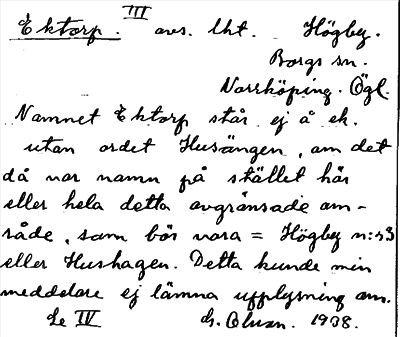 Ektorp. III avs. lht. Högby.
Borgs sn.
Norrköping. Ögl.
Namnet Ektorp står ej å ek.
utan ordet Husängen, om det
då var namn på stället här
eller hela detta avgränsade om-
råde, som bör vara = Högby n:r3
eller Hushagen. Detta kunde min
meddelare ej lämna upplysning om.
Se IV G. Olson. 1938.